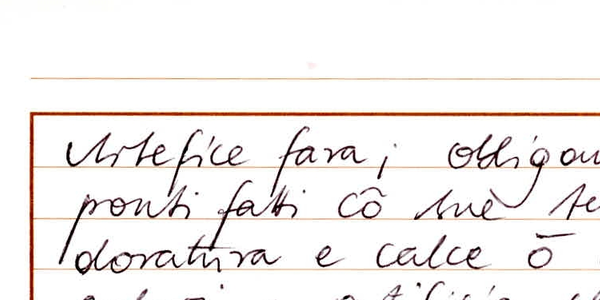 Artefice fara; obligan
ponti fatti cô sue te
doratura e calce ō